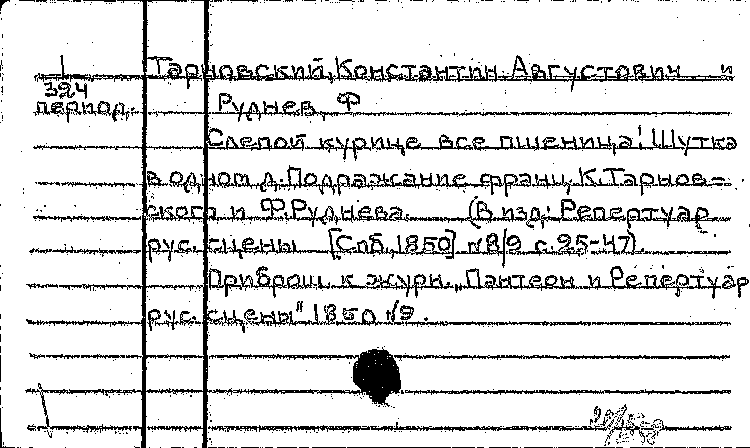 1 Тарновский, Константин Августович и
324
период. Руднев, Ф
Слепой курице все пшеница! Шутка
в одном д. Подражание франц, К. Тарнов=
ского и Ф. Руднева. (В изд: Репертуар
рус. сцены [Спб, 1850] №8/9 с. 25-47).
Приброш. к журн. „Пантеон и Репертуар
рус. сцены" 1850 №9.